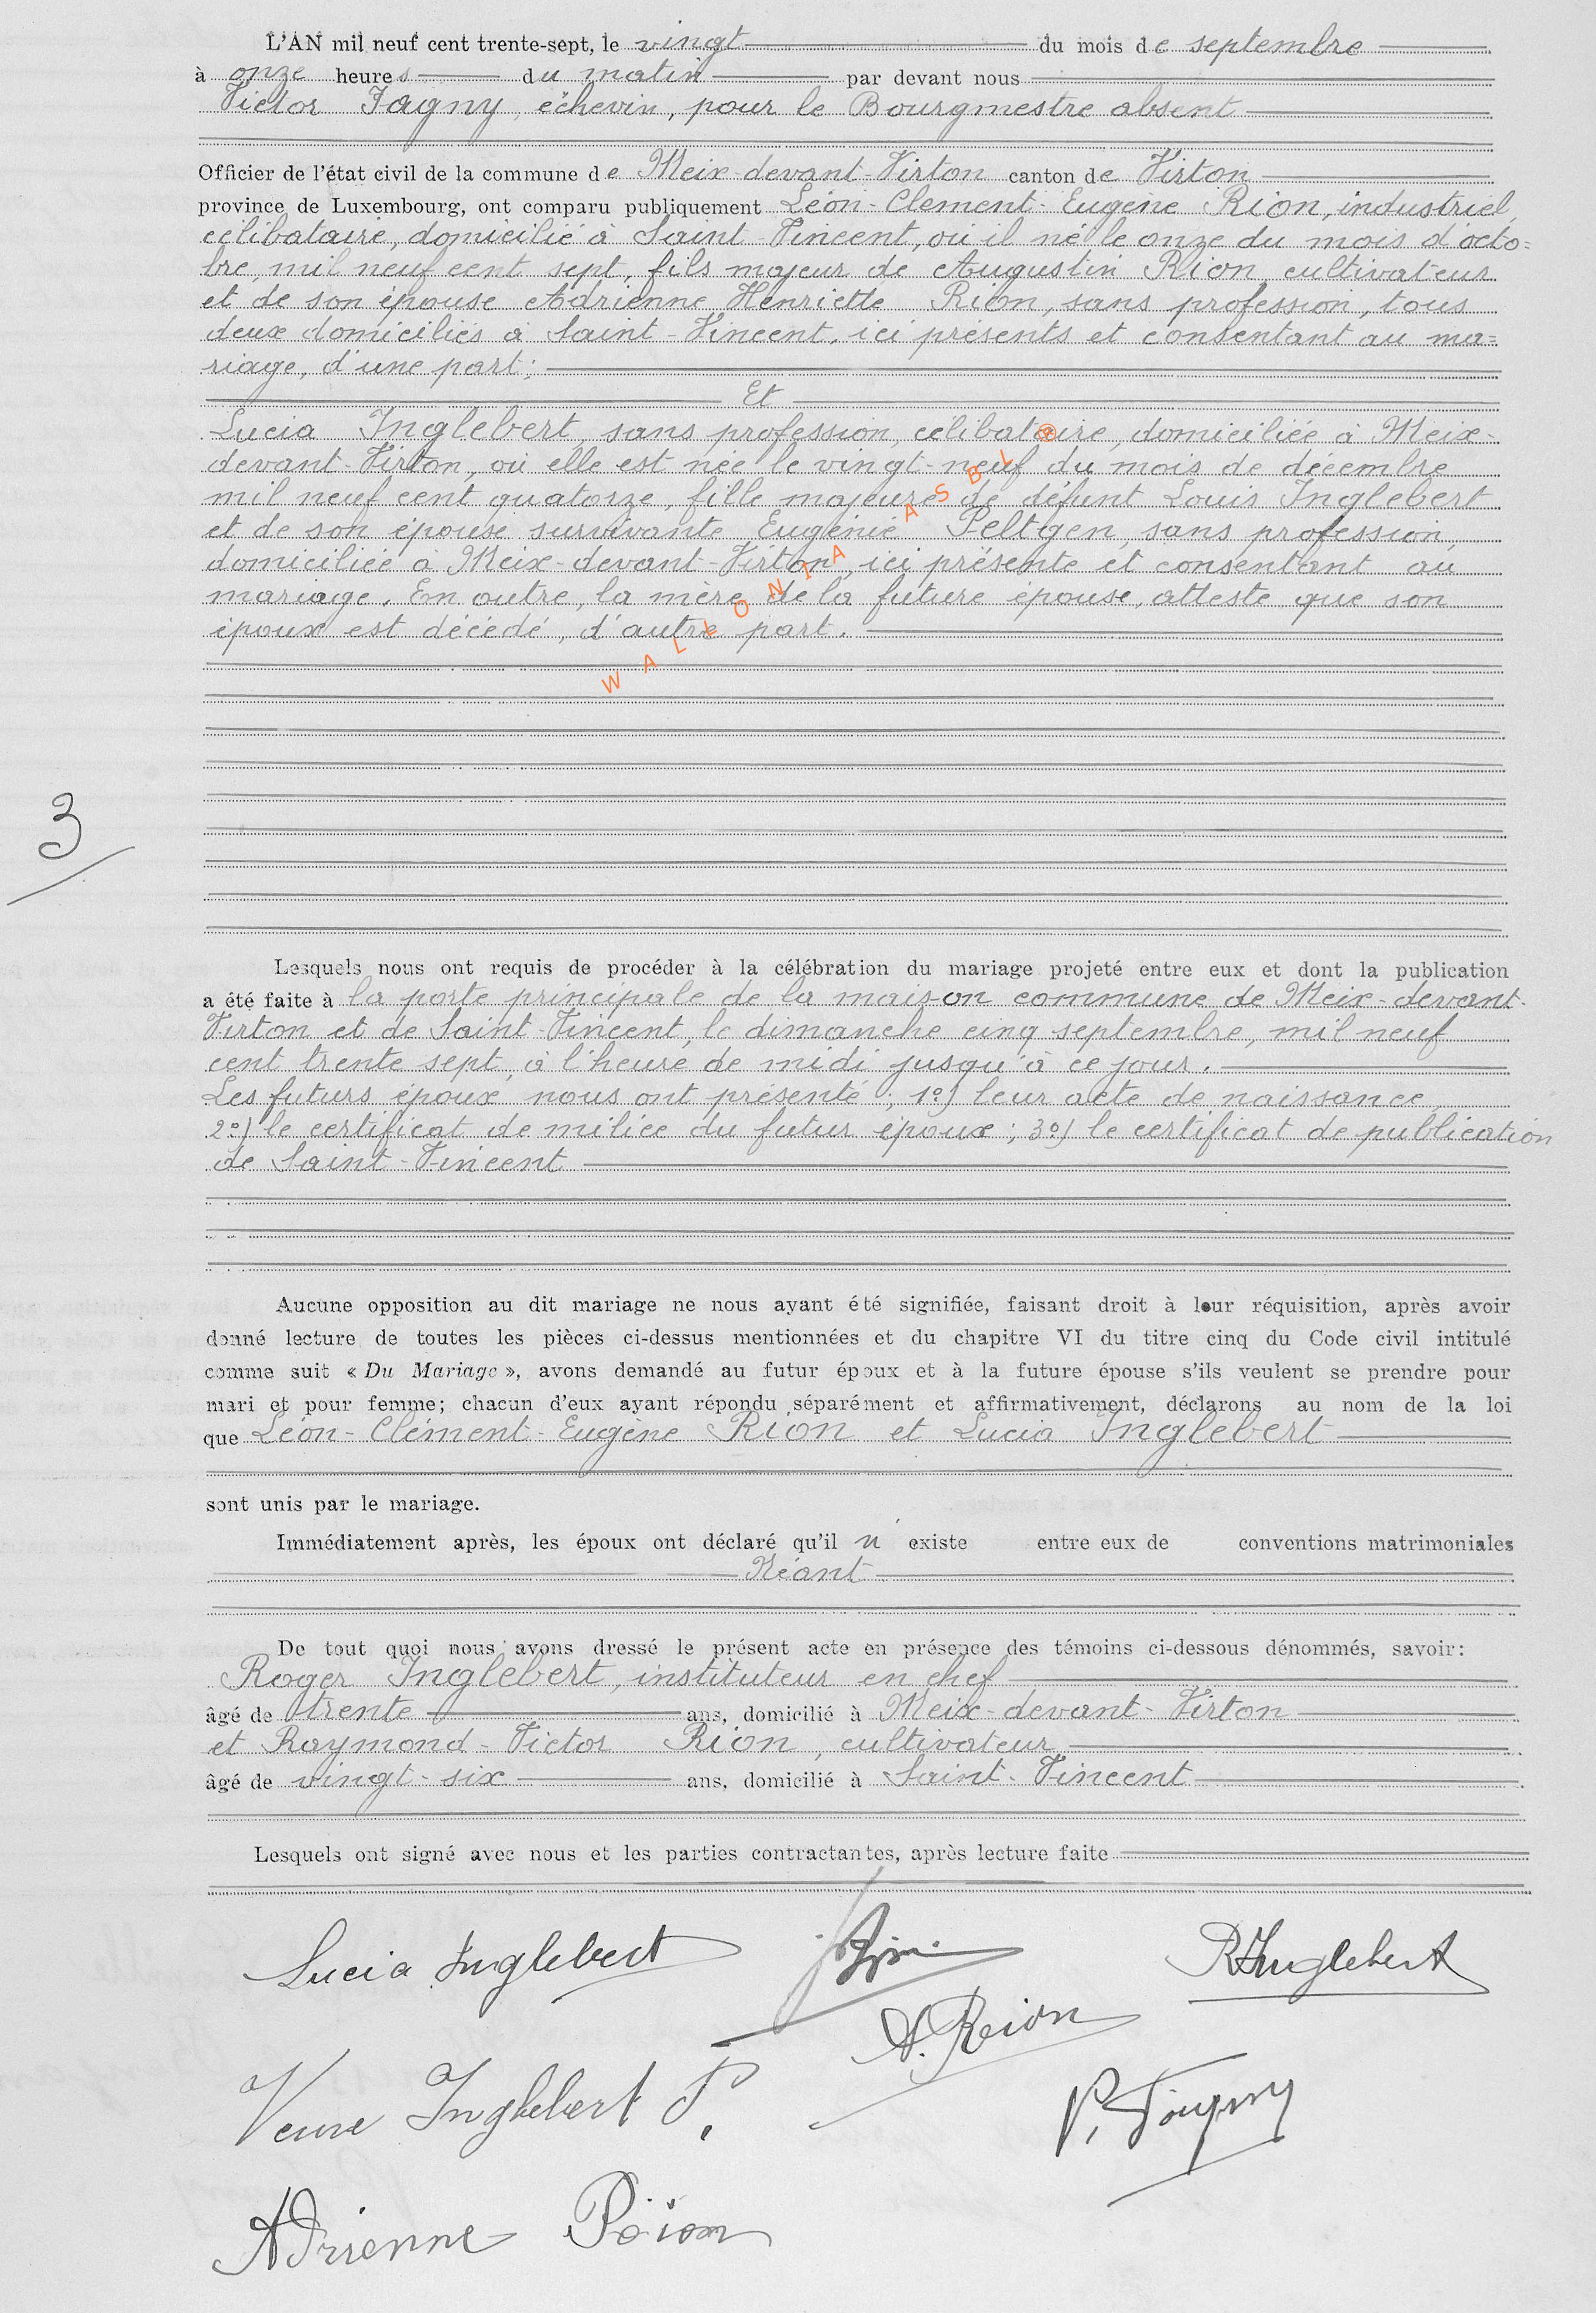 L'AN mil neuf cent trente-sept, le vingt du mois de septembre
à onze heures du matin par devant nous
Victor Fagny, échevin, pour le Bourgmestre absent
Officier de l'état civil de la commune de Meix-devant-Virton canton de Virton
province de Luxembourg, ont comparu publiquement Léon-Clement-Eugène Rion, industriel,
célibataire, domicilié à Saint-Vincent, où il né le onze du mois d'octo=
bre, mil neuf cent sept, fils majeur de Augustin Rion, cultivateur
et de son épouse Adrienne Henriette Rion, sans profession, tous
deux domiciliés à Saint-Vincent, ici présents et consentant au ma=
riage, d'une part;
Et
Lucia Inglebert, sans profession, célibataire, domiciliée à Meix-
devant-Virton, où elle est née le vingt-neuf du mois de décembre
mil neuf cent quatorze, fille majeure de défunt Louis Inglebert
et de son épouse survivante Eugénie Peltgen, sans profession,
domiciliée à Meix-devant-Virton, ici présente et consentant au
mariage. En outre, la mère de la future épouse, atteste que son
époux est décédé, d'autre part.
WALLONIA ASBL ®
3
Lesquels nous ont requis de procéder à la célébration du mariage projeté entre eux et dont la publication
a été faite à la porte principale de la maison commune de Meix-devant-
Virton et de Saint-Vincent, le dimanche cinq septembre, mil neuf
cent trente sept, à l'heure de midi jusqu'à ce jour.
Les futurs époux nous ont présenté; 1º) leur acte de naissance,
2º) le certificat de milice du futur époux; 3º) le certificat de publication
de Saint-Vincent
Aucune opposition au dit mariage ne nous ayant été signifiée, faisant droit à leur réquisition, après avoir
donné lecture de toutes les pièces ci-dessus mentionnées et du chapitre VI du titre cinq du Code civil intitulé
comme suit « Du Mariage », avons demandé au futur époux et à la future épouse s'ils veulent se prendre pour
mari et pour femme; chacun d'eux ayant répondu séparément et affirmativement, déclarons au nom de la loi
que Léon-Clément-Eugène Rion et Lucia Inglebert
sont unis par le mariage.
Immédiatement après, les époux ont déclaré qu'il n'existe entre eux de conventions matrimoniales
Néant
De tout quoi nous avons dressé le présent acte en présence des témoins ci-dessous dénommés, savoir:
Roger Inglebert, instituteur en chef
âgé de trente ans, domicilié à Meix-devant-Virton
et Raymond-Victor Rion, cultivateur
âgé de vingt-six ans, domicilié à Saint-Vincent
Lesquels ont signé avec nous et les parties contractantes, après lecture faite
Lucia Inglebert Rion RInglebert
A. Reion
Veuve Inglebert P. V. Fagny
Adrienne Rëion